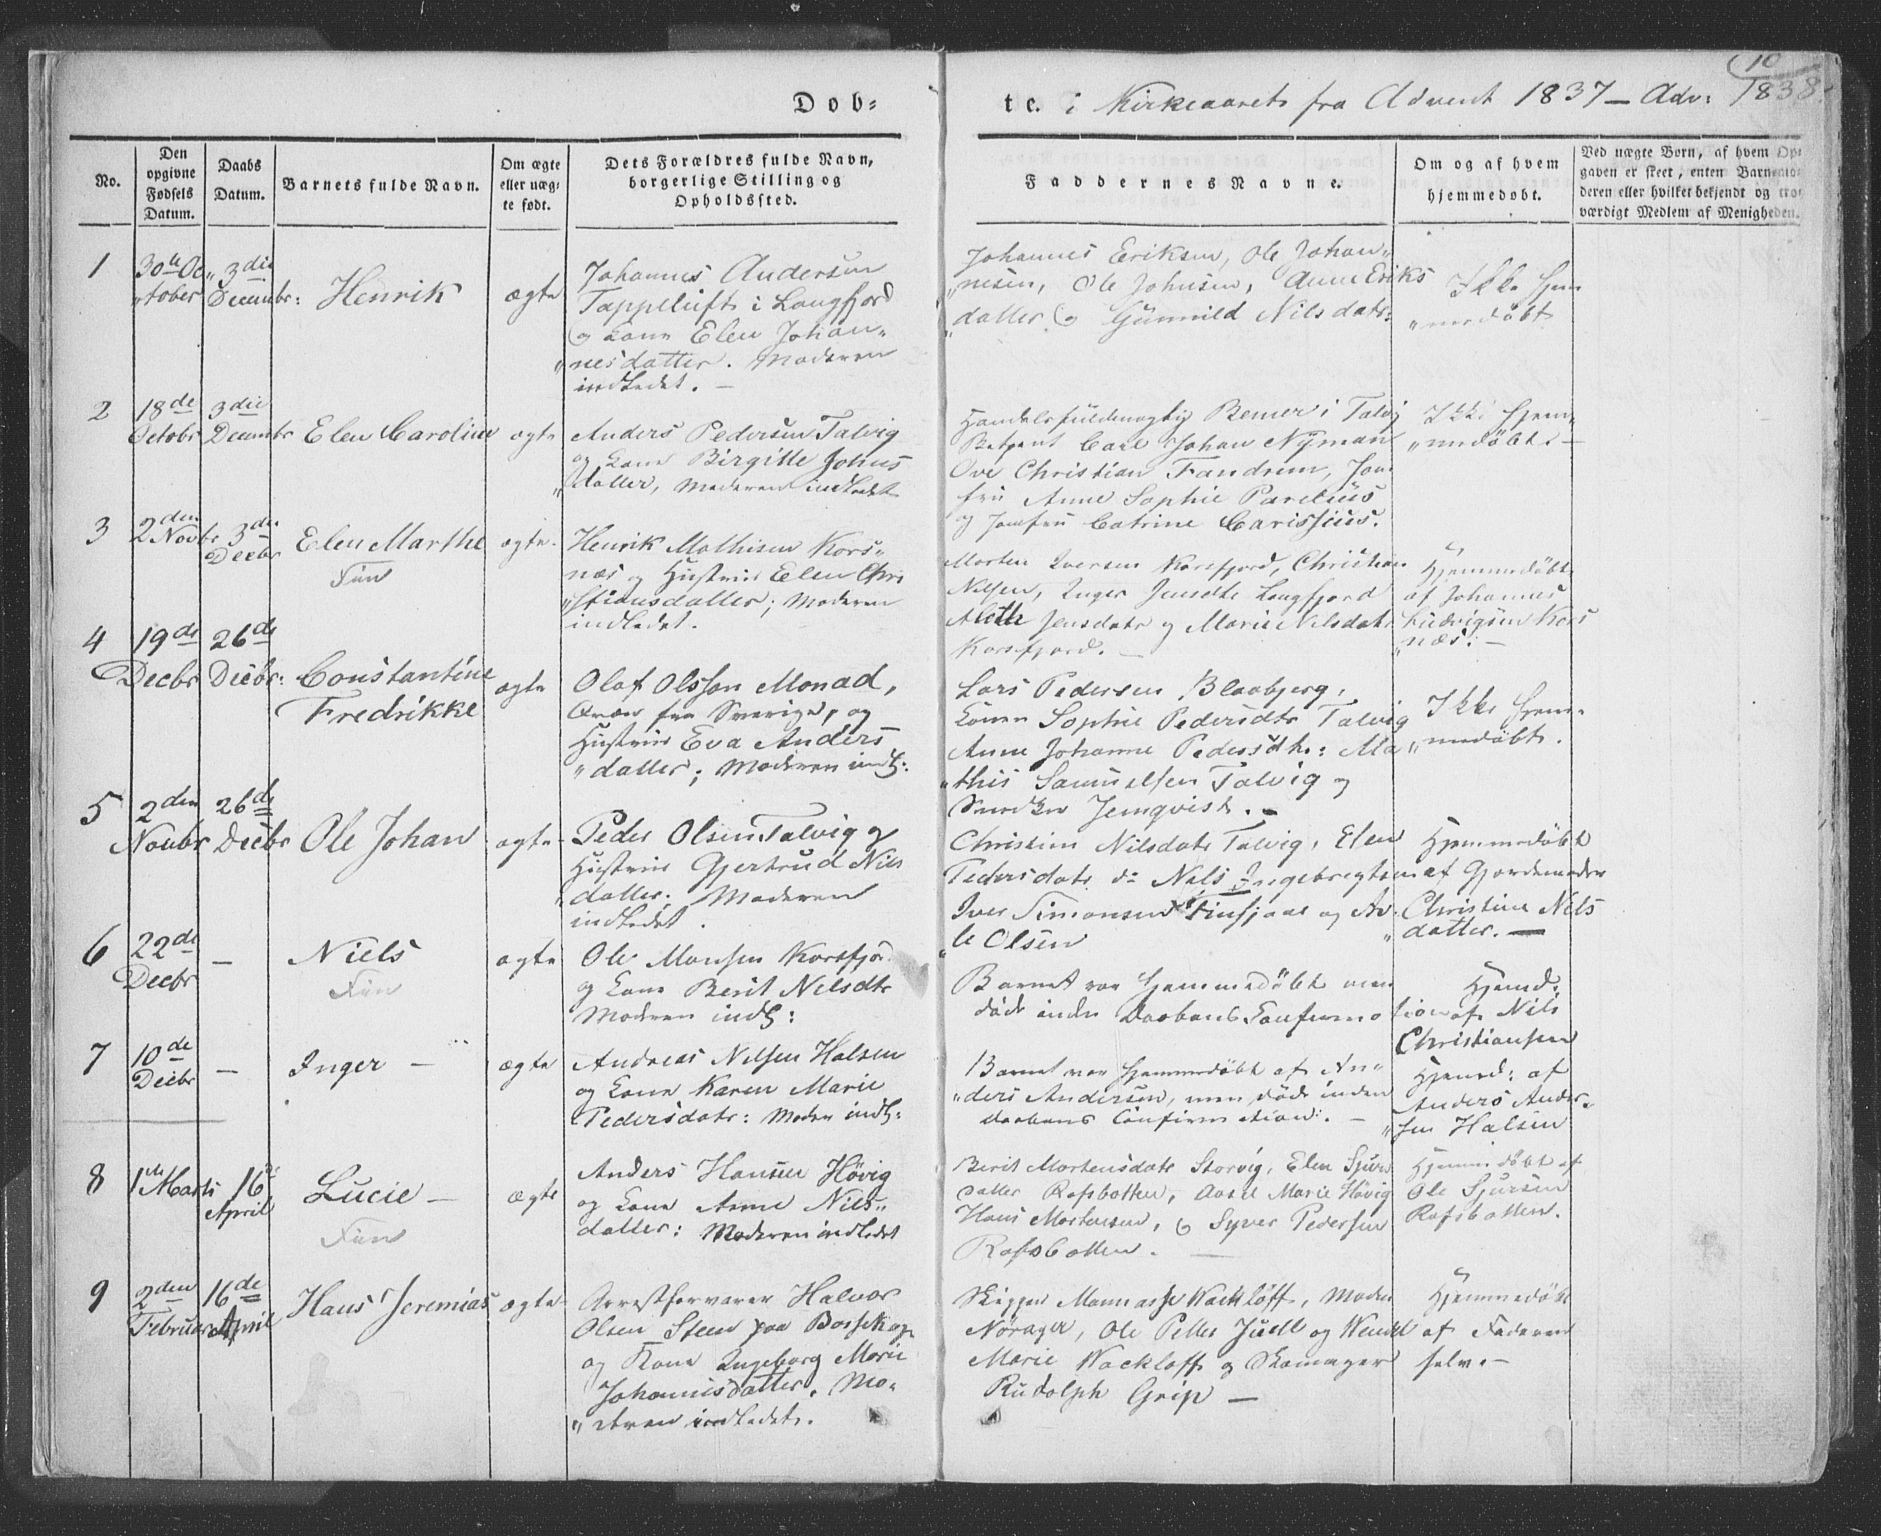 10
Dob-
te. i Kirkeaaret fra Advent 1837 – Adv: 1838.
No.
Den opgivne Fødsels Datum.
Daabs Datum.
Barnets fulde Navn.
Om ægte eller uæg- te født.
Dets Forældres fulde Navn, borgerlige Stilling og Opholdssted.
Faddernes Navne.
Om og af hvem hjemmedøbt.
Ved uægte Børn, af hvem Op- gaven er skeet, enten Barnemo- deren eller hvilket bekjendt og tro- værdigt Medlem af Menigheden.
1
30te Oc
"tober
3die
Decembr:
Henrik
ægte
Johannes Andersen
Tappeluft i Langfjord
og Kone Elen Johan-
"nesdatter. Moderen
indledet. –
Johannes Eriksen, Ole Johan-
"nesen, Ole Johnsen, Anne Eriks
"datter og Gunnild Nilsdatr:
Ikke hjem
"medøbt
2
18de
Octobr
3die
Decembr
Elen Caroline
ægte
Anders Pedersen Talvig
og Kone Birgitte Johns
"datter, Moderen indledet
Handelsfuldmægtig Bemer i Talvig
Betjent Carl Johan Nyman
Ove Christian Fandrem, Jom
fru Anne Sophie Parelius
og Jomfru Catrine Carissius.
Ikke hjem-
"medøbt. –
3
2den
Novbr
3die
Decbr
Elen Marthe
Fin
ægte.
Henrik Mathisen Kors-
næs og Hustrue Elen Chri
"stiansdatter; Moderen
indledet.
Morten Iversen Korsfjord, Christian
Nilsen, Inger Jensdtr Langfjord
Aleth Jensdatr og Marie Nilsdatr
Korsfjord. –
Hjemmedøbt
af Johannes
Ludvigsen Kors
"næs. –
4
19de
Decbr
26de
Decbr:
Constantine
Fredrikke
ægte
Olof Olsson Monad,
Qvæn fra Sverige, og
Hustrue Eva Anders
"datter; Moderen indl:
Lars Pedersen Blaabjerg,
Konen Sophie Pedersdtr Talvig
Anne Johanne Pedersdtr: Ma
"this Samuelsen Talvig og
Snedker Jernqvist. –
Ikke hjem-
"medøbt.
5
2den
Novbr
26de
Decbr
Ole Johan
ægte
Peder Olsen Talvig og
Hustrue Gjertrud Nils
"datter. Moderen
indledet.
Christine Nilsdatr Talvig, Elen
Pedersdatr do Nils Ingebregtsen
Iver Simonsen Finsjaae og As-
"le Olsen
Hjemmedøbt
af Gjordemoder
Christine Nils
"datter. –
6
22de
Decbr
–
Niels
Fin
ægte
Ole Monsen Korsfjor
og Kone Berit Nilsdtr
Moderen indl:
Barnet var hjemmedøbt men
døde inden Daabens Confirma
Hjemd:
tion af Nils
Christiansen
7
10de
Decbr
–
Inger –
ægte
Andreas Nilsen Halsen
og Kone Karen Marie
Pedersdatr: Moder indl:
Barnet var hjemmedøbt af An-
"ders Andersen, men døde inden
daabens Confirmation. –
Hjemd: af
Anders Ander-
"sen Halsen
8
1ste Marts
16de
April
Lucie –
Fin
ægte
Anders Hansen Høvig
og Kone Anne Nils-
datter: Moderen indledet
Berit Mortensdatr Storvig, Elen Sjurs
datter Rafsbotten, Marie Høvig
Hans Mortensen, og Syver Pedersen
Rafsbotten. –
Hjemmedøbt af
Ole Sjursen
Rafsbotten.
9
2den
Februar
16de
April
Hans Jeremias
ægte
Arrestforvarer Halvor
Olsen Steen paa Bossekop
og Kone Ingeborg Marie
Johannesdatter. Mo-
"deren indledet.
Skipper Mannasse Wackløff, Madm
Nørager, Ole Peller Juell og Wendel
Marie Wackløff og Skomager
Rudolph Grip –
Hjemmedøbt
af Faderen
selv. –